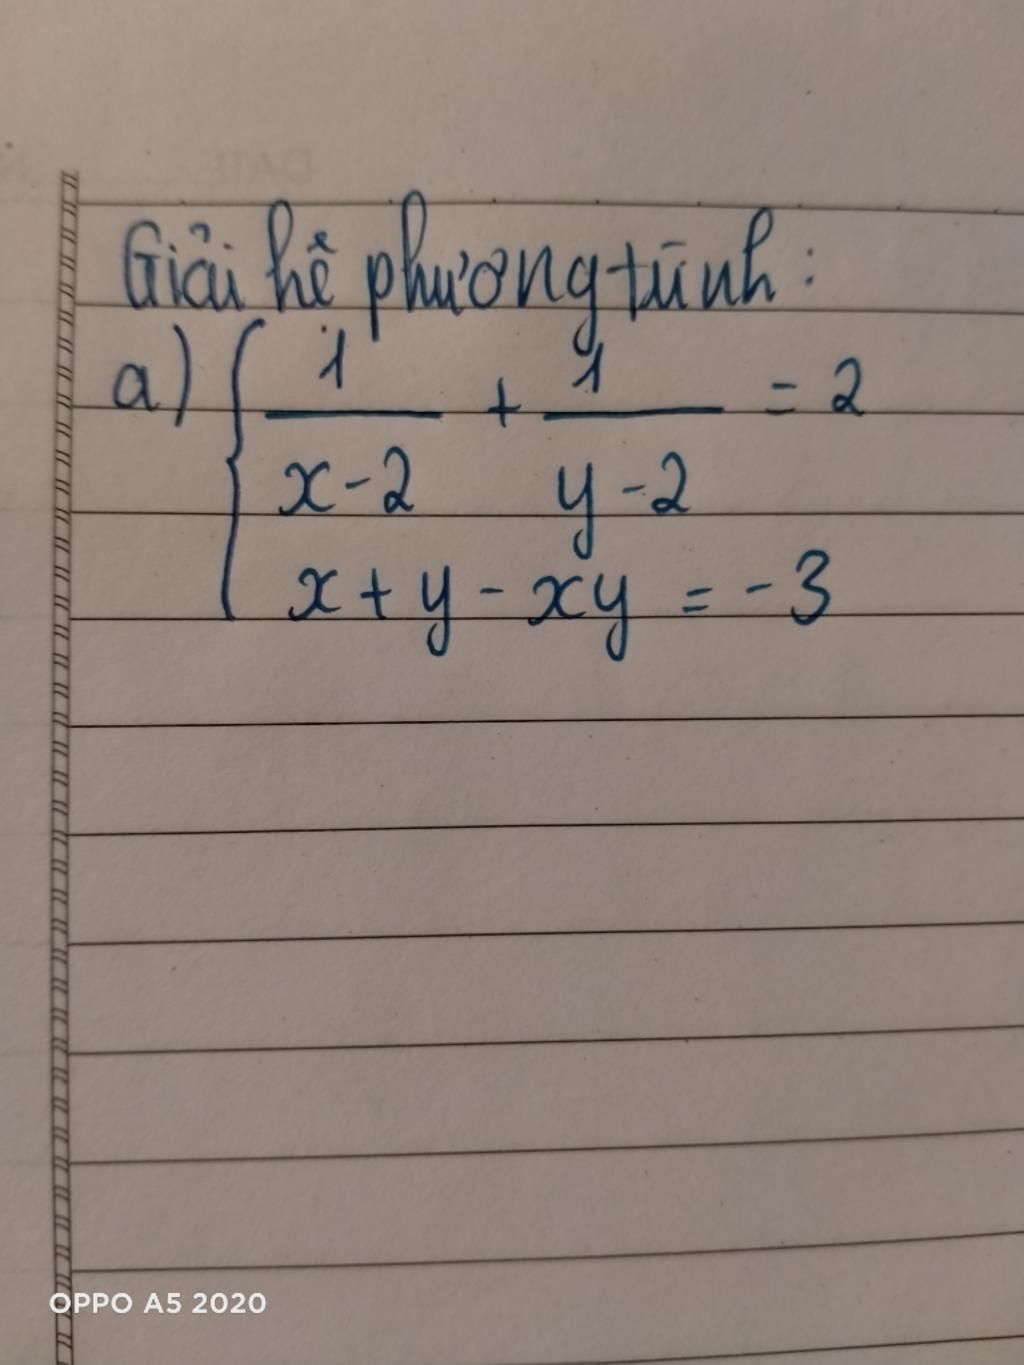 Giải hệ phương trình:
a) { 1/(x-2) + 1/(y-2) = 2
x + y - xy = -3
OPPO A5 2020